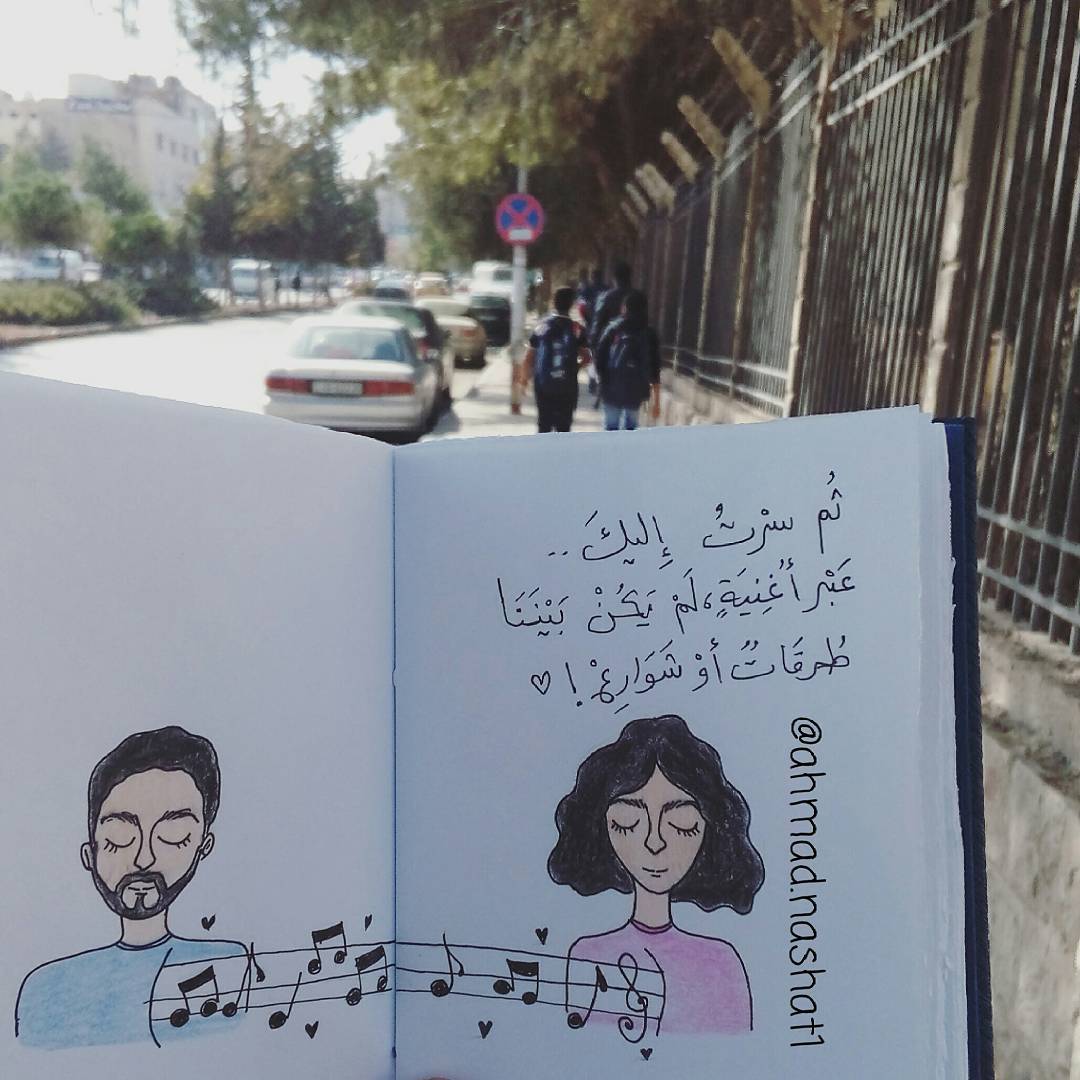 ثُم سرْتُ إِليكَ..
عَبْر أُغنِيَةٍ، لَمْ يَكُنْ بَيْنَنَا
طُرقَاتٌ أوْ شَوَارِعْ! ♡
@ahmad.nashat1